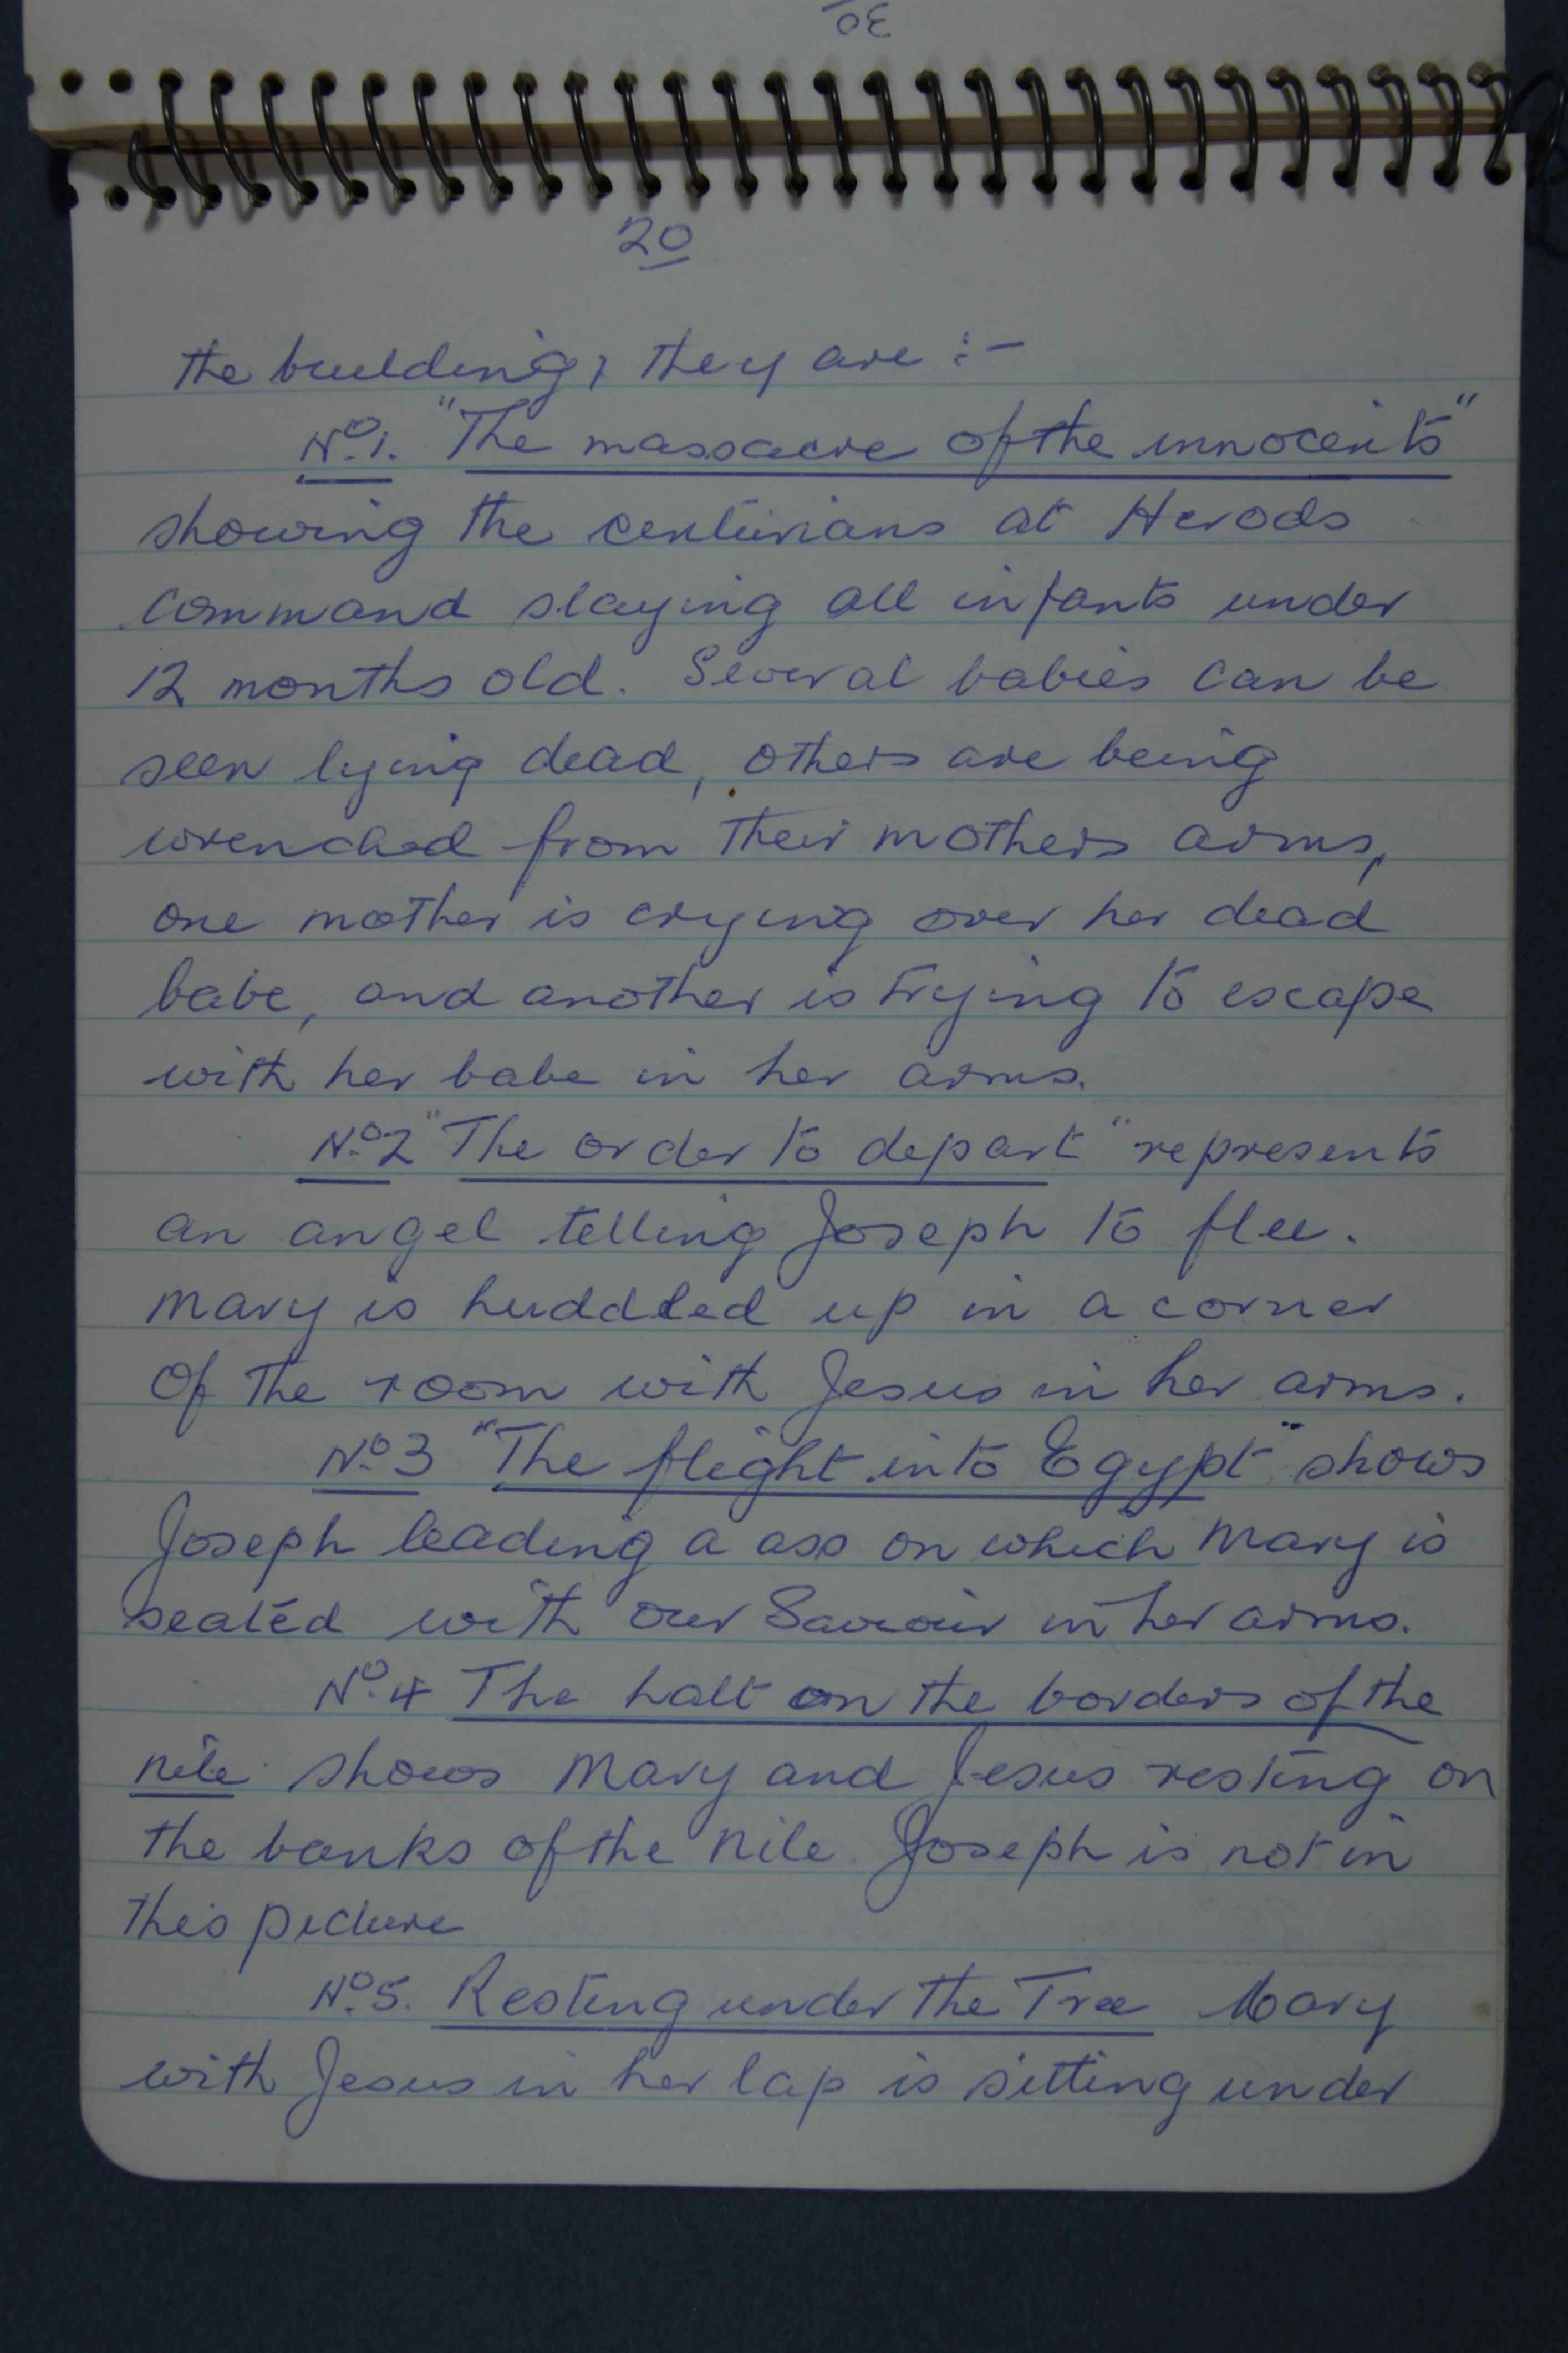 30
20
the building, they are :-
No.1. "The massacre of the innocents"
showing the centurians at Herods
command slaying all infants under
12 months old. Several babies can be
seen lying dead, others are being
wrenched from their mothers arms,
one mother is crying over her dead
babe, and another is trying to escape
with her babe in her arms.
No.2 "The order to depart" represents
an angel telling Joseph to flee.
Mary is huddled up in a corner
of the room with Jesus in her arms.
No.3 "The flight into Egypt" shows
Joseph leading a ass on which Mary is
seated with our Saviour in her arms.
No.4 The halt on the borders of the
nile shows Mary and Jesus resting on
the banks of the nile. Joseph is not in
this picture
No.5. Resting under the Tree Mary
with Jesus in her lap is sitting under